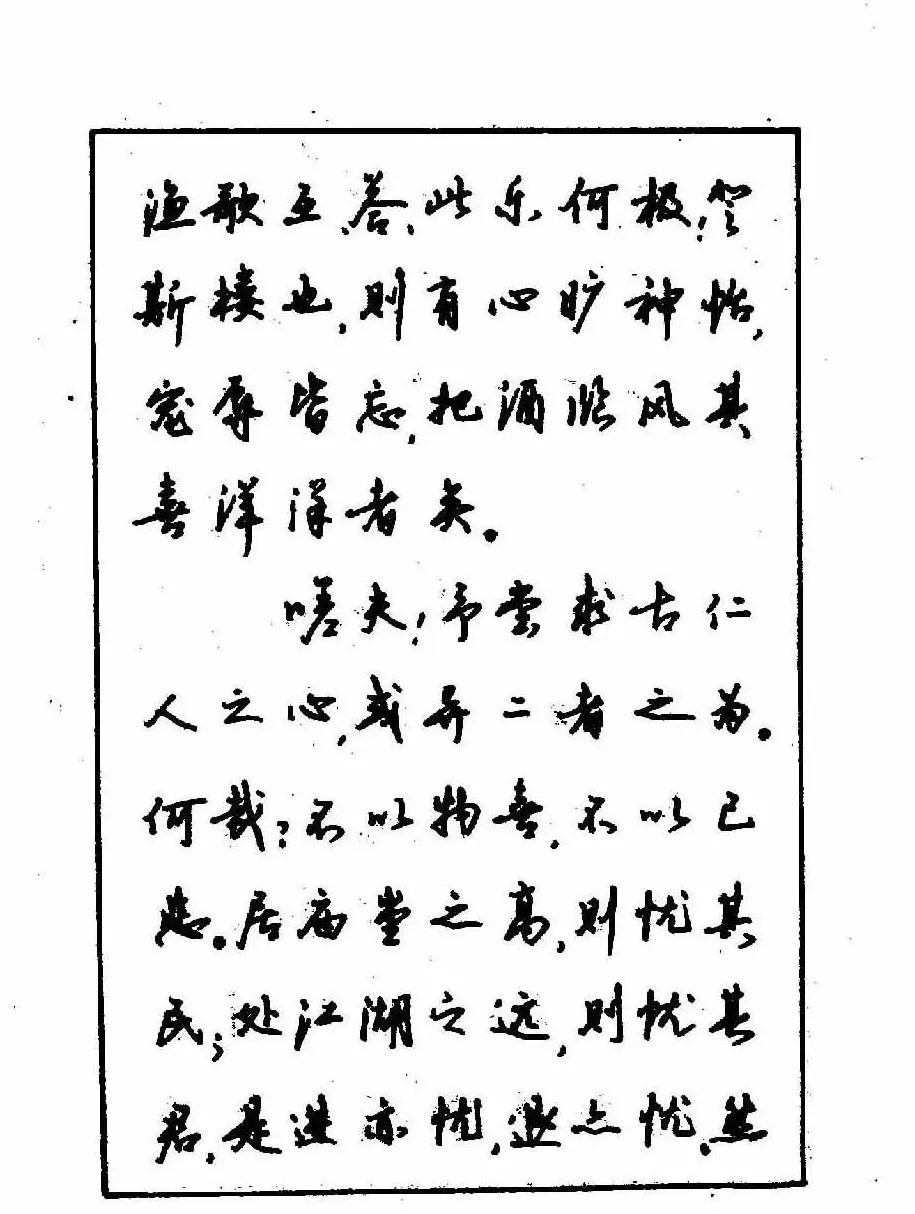 渔歌互答,此乐何极!登
斯楼也,则有心旷神怡,
宠辱皆忘,把酒临风其
喜洋洋者矣。
嗟夫!予尝求古仁
人之心,或异二者之为。
何哉?不以物喜,不以己
悲。居庙堂之高,则忧其
民;处江湖之远,则忧其
君,是进亦忧,退亦忧.然